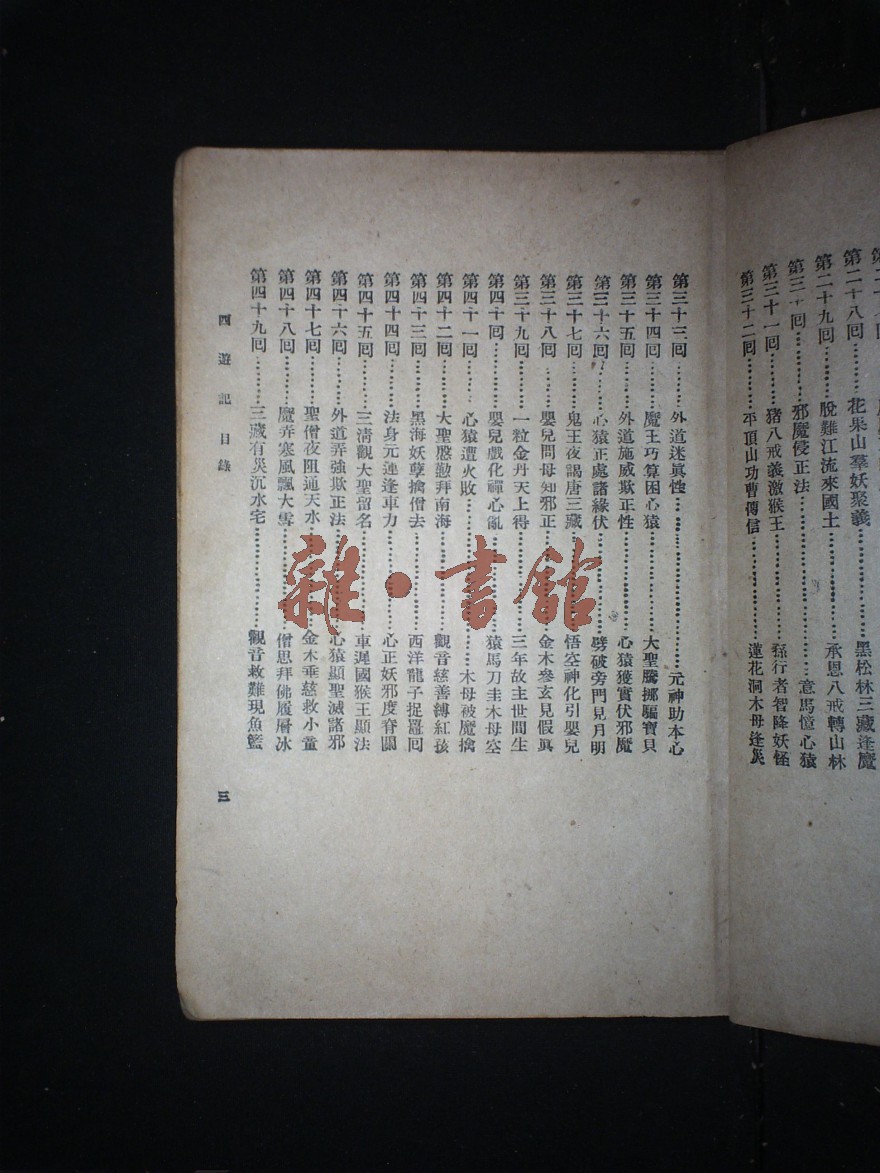 花果山羣妖聚義……黑松林三藏逢魔
第二十九回……脫難江流來國土……承恩八戒轉山林
第三十回……邪魔侵正法……意馬憶心猿
第三十一回……猪八戒義激猴王……孫行者智降妖怪
第三十二回……平頂山功曹傳信……蓮花洞木母逢災
第三十三回……外道迷眞性……元神助本心
第三十四回……魔王巧算困心猿……大聖騰挪騙寶貝
第三十五回……外道施威欺正性……心猿獲寶伏邪魔
第三十六回……心猿正處諸緣伏……劈破旁門見月明
第三十七回……鬼王夜謁唐三藏……悟空神化引嬰兒
第三十八回……嬰兒問母知邪正……金木參玄見假眞
第三十九回……一粒金丹天上得……三年故主世間生
第四十回……嬰兒戲化禪心亂……猿馬刀圭木母空
第四十一回……心猿遭火敗……木母被魔擒
第四十二回……大聖慇懃拜南海……觀音慈善縛紅孩
第四十三回……黑海妖孽擒僧去……西洋龍子捉鼉回
第四十四回……法身元運逢車力……心正妖邪度脊關
第四十五回……三淸觀大聖留名……車遲國猴王顯法
第四十六回……外道弄強欺正法……心猿顯聖滅諸邪
第四十七回……聖僧夜阻通天水……金木垂慈救小童
第四十八回……魔弄寒風飄大雪……僧思拜佛履層冰
第四十九回……三藏有災沉水宅……觀音救難現魚籃
西遊記目錄
三
雜·書館